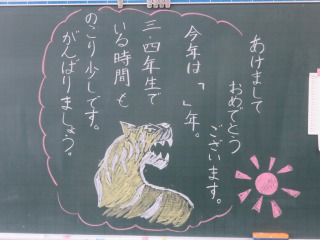 あけまして
おめでとう
ございます。
今年は「　」年。
三・四年生で
いる時間も
のこり少しです。
がんばりましょう。